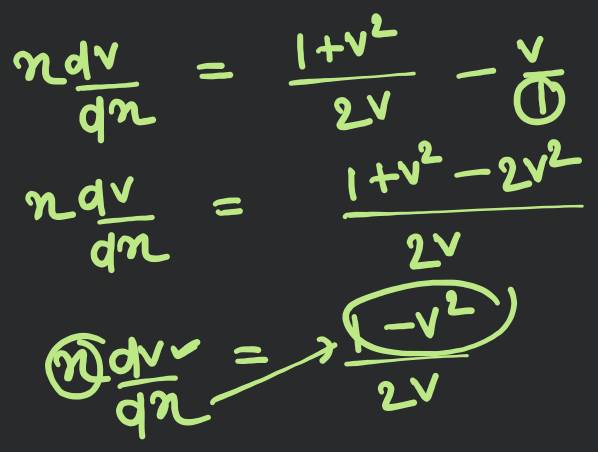 x dv/dx = (1+v²)/2v − v/1
x dv/dx = (1+v²−2v²)/2v
x dv/dx = (1−v²)/2v